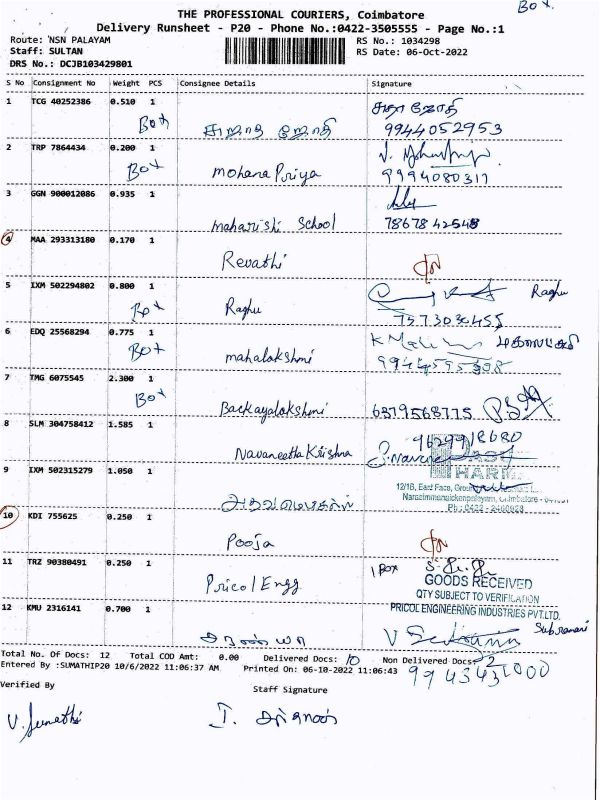 Box.
THE PROFESSIONAL COURIERS, Coimbatore
Delivery Runsheet - P20 - Phone No.:0422-3505555 - Page No.:1
Route: NSN PALAYAM RS No.: 1034298
Staff: SULTAN RS Date: 06-Oct-2022
DRS No.: DCJB103429801
S No Consignment No Weight PCS Consignee Details Signature
1 TCG 40252386 0.510 1
Box சுஜாத ஜோதி 9944052953
2 TRP 7864434 0.200 1
Box Mohana Priya 9994080311
3 GGN 900012086 0.935 1
maharishi School 7867842548
4 MAA 293313180 0.170 1
Revathi
5 IXM 502294802 0.800 1 Raghu
Box Raghu 7573030455
6 EDQ 25568294 0.775 1
Box mahalakshmi
7 TMG 6075545 2.300 1
Box Backayalakshmi 6379568775
8 SLM 304758412 1.585 1
Navaneetha Krishna
9 IXM 502315279 1.050 1
12/1B, East Face,
Narasimmanaickenpalayam, Coimbatore
Ph : 0422 - 2460828
10 KDI 755625 0.250 1
Pooja
11 TRZ 90380491 0.250 1
Pricol Engg 1 Box
GOODS RECEIVED
QTY SUBJECT TO VERIFICATION
PRICOL ENGINEERING INDUSTRIES PVT.LTD.
12 KMU 2316141 0.700 1
சரண்யா
Total No. Of Docs: 12 Total COD Amt: 0.00 Delivered Docs: 10 Non Delivered Docs: 2
Entered By :SUMATHIP20 10/6/2022 11:06:37 AM Printed On: 06-10-2022 11:06:43
Verified By Staff Signature